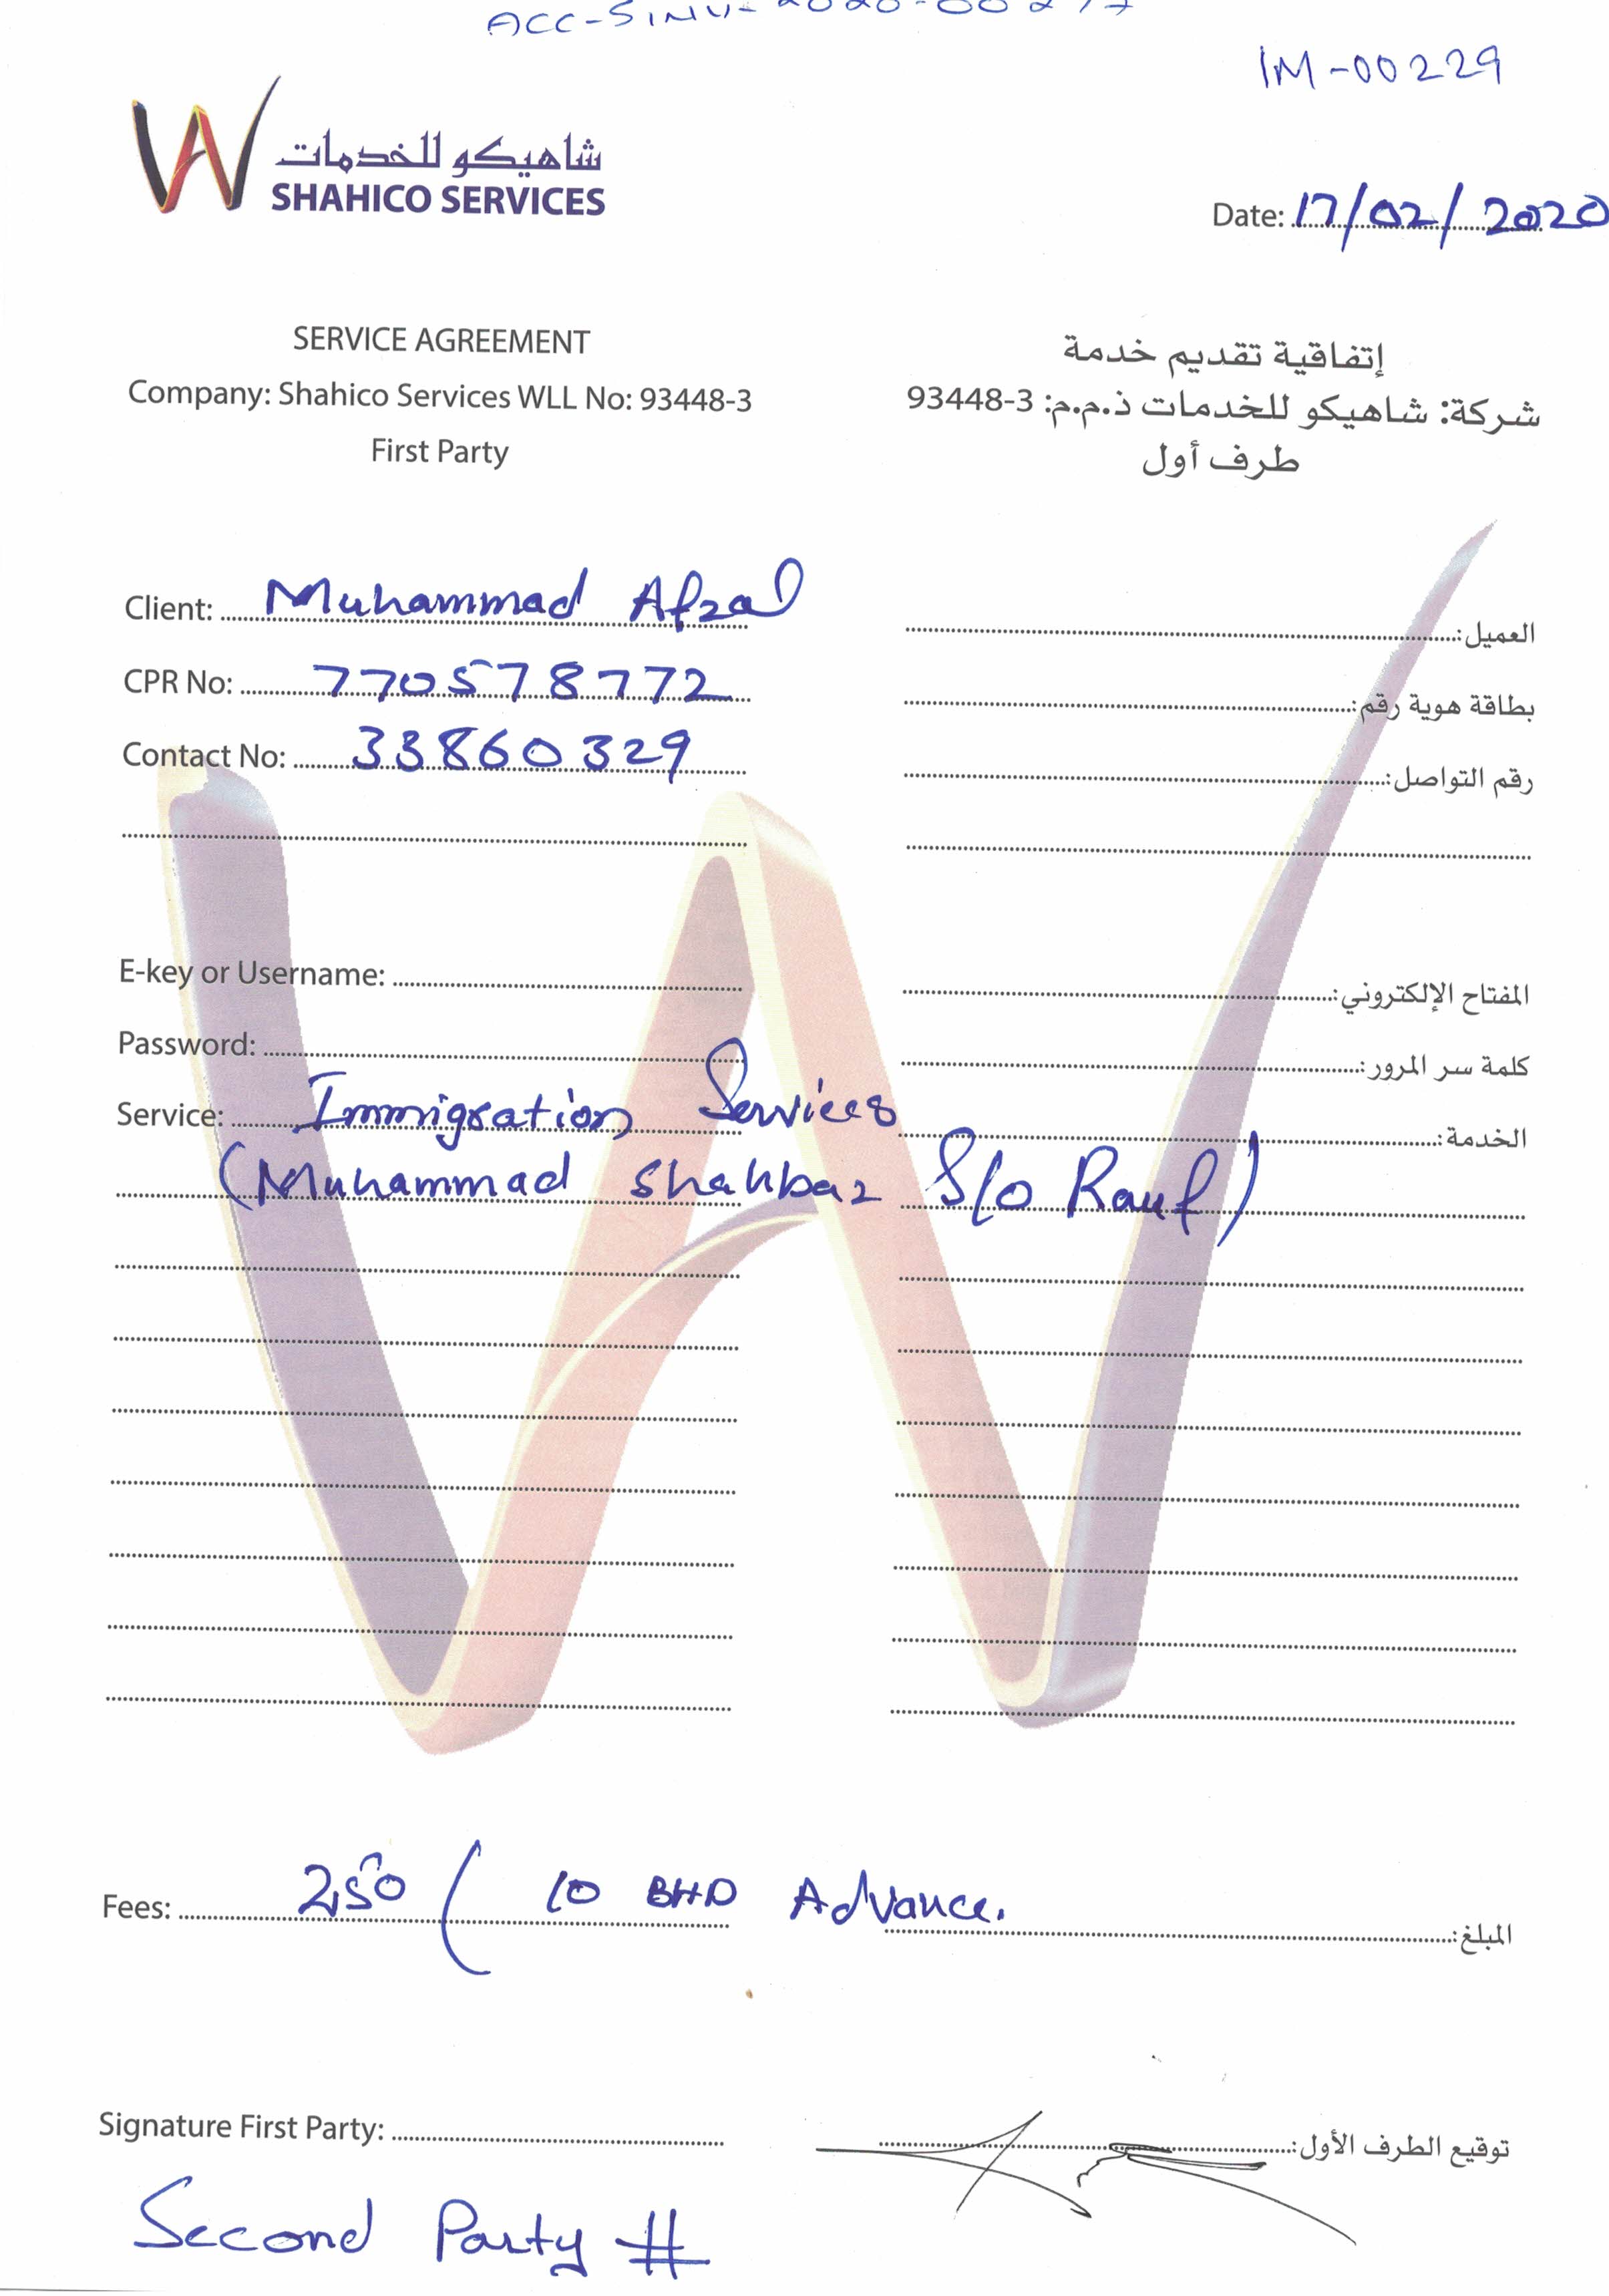 IM-00229
شاهيكو للخدمات
SHAHICO SERVICES
Date: 17/02/2020
SERVICE AGREEMENT
إتفاقية تقديم خدمة
Company: Shahico Services WLL No: 93448-3
شركة: شاهيكو للخدمات ذ.م.م: 3-93448
First Party
طرف أول
Client: Muhammad Afzal
العميل:
CPR No: 770578772
بطاقة هوية رقم:
Contact No: 33860329
رقم التواصل:
E-key or Username:
المفتاح الإلكتروني:
Password:
كلمة سر المرور:
Service: Immigration Services
الخدمة:
(Muhammad Shahbaz S/o Rauf)
Fees: 250 ( 10 BHD Advance.
المبلغ:
Signature First Party:
توقيع الطرف الأول:
Second Party #